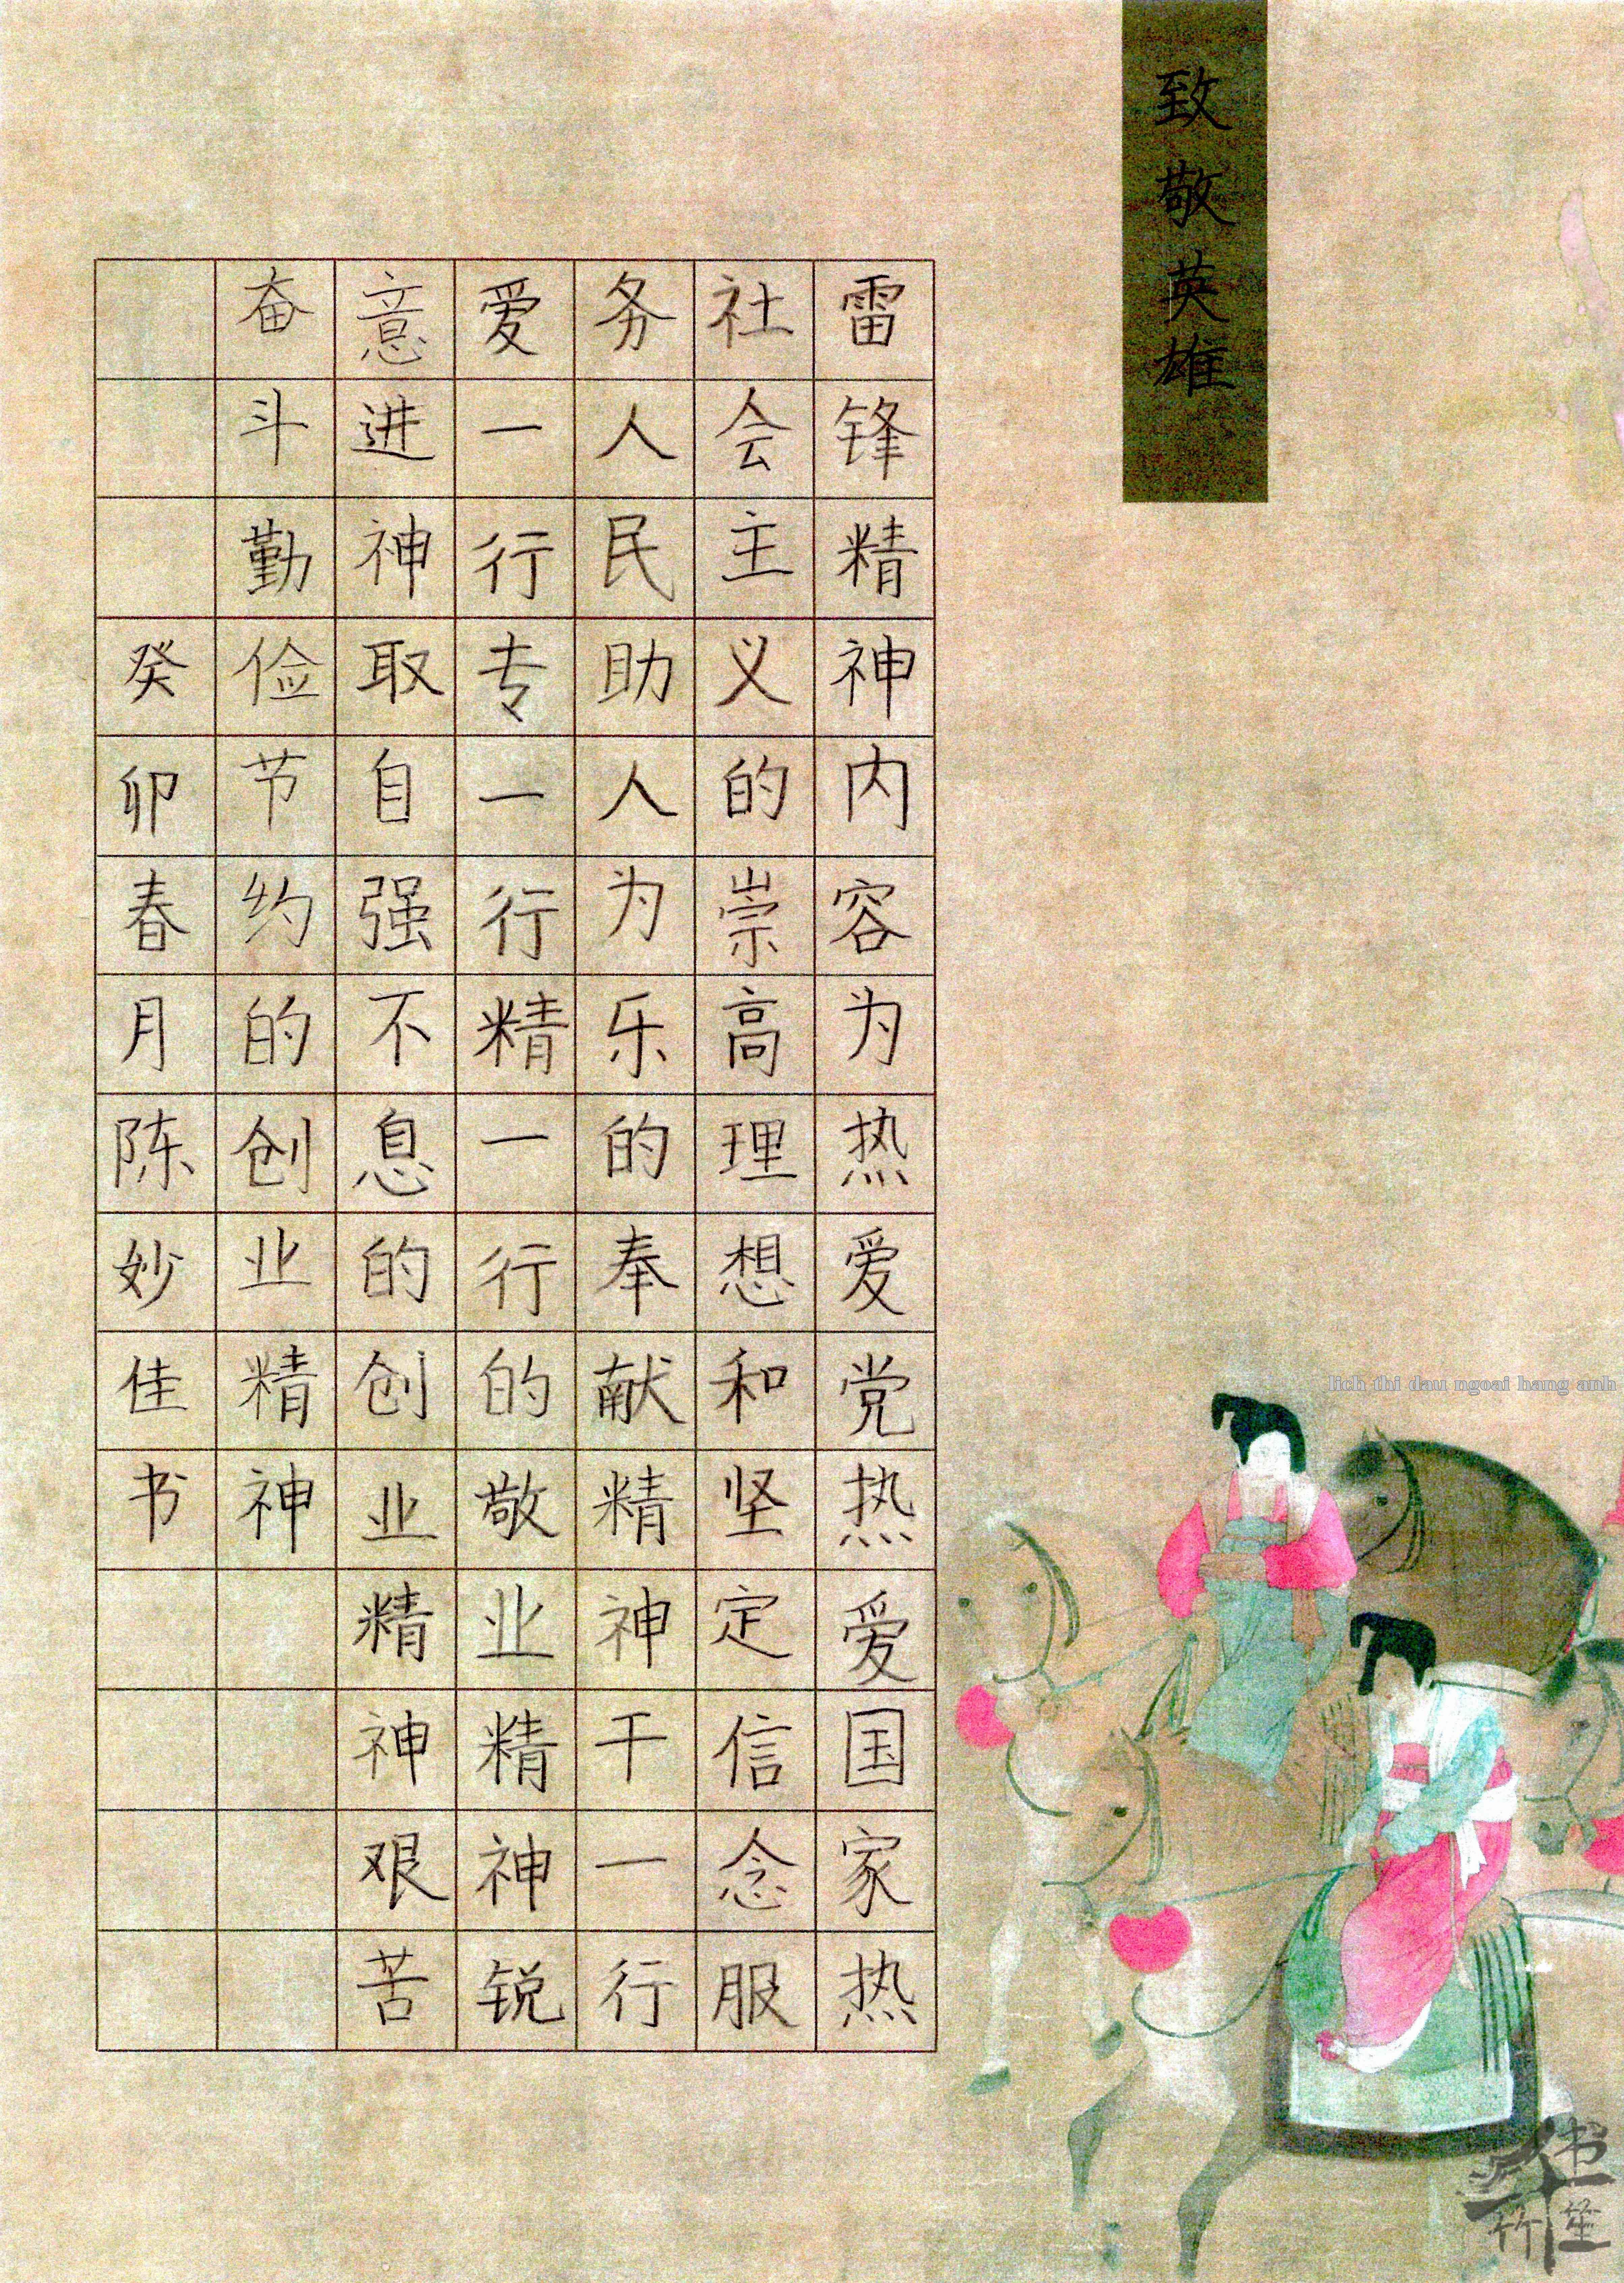 致敬英雄
雷锋精神内容为热爱党热爱国家热
社会主义的崇高理想和坚定信念服
务人民助人为乐的奉献精神干一行
爱一行专一行精一行的敬业精神锐
意进神取自强不息的创业精神艰苦
奋斗勤俭节约的创业精神
癸卯春月陈妙佳书
lich thi dau ngoai hang anh